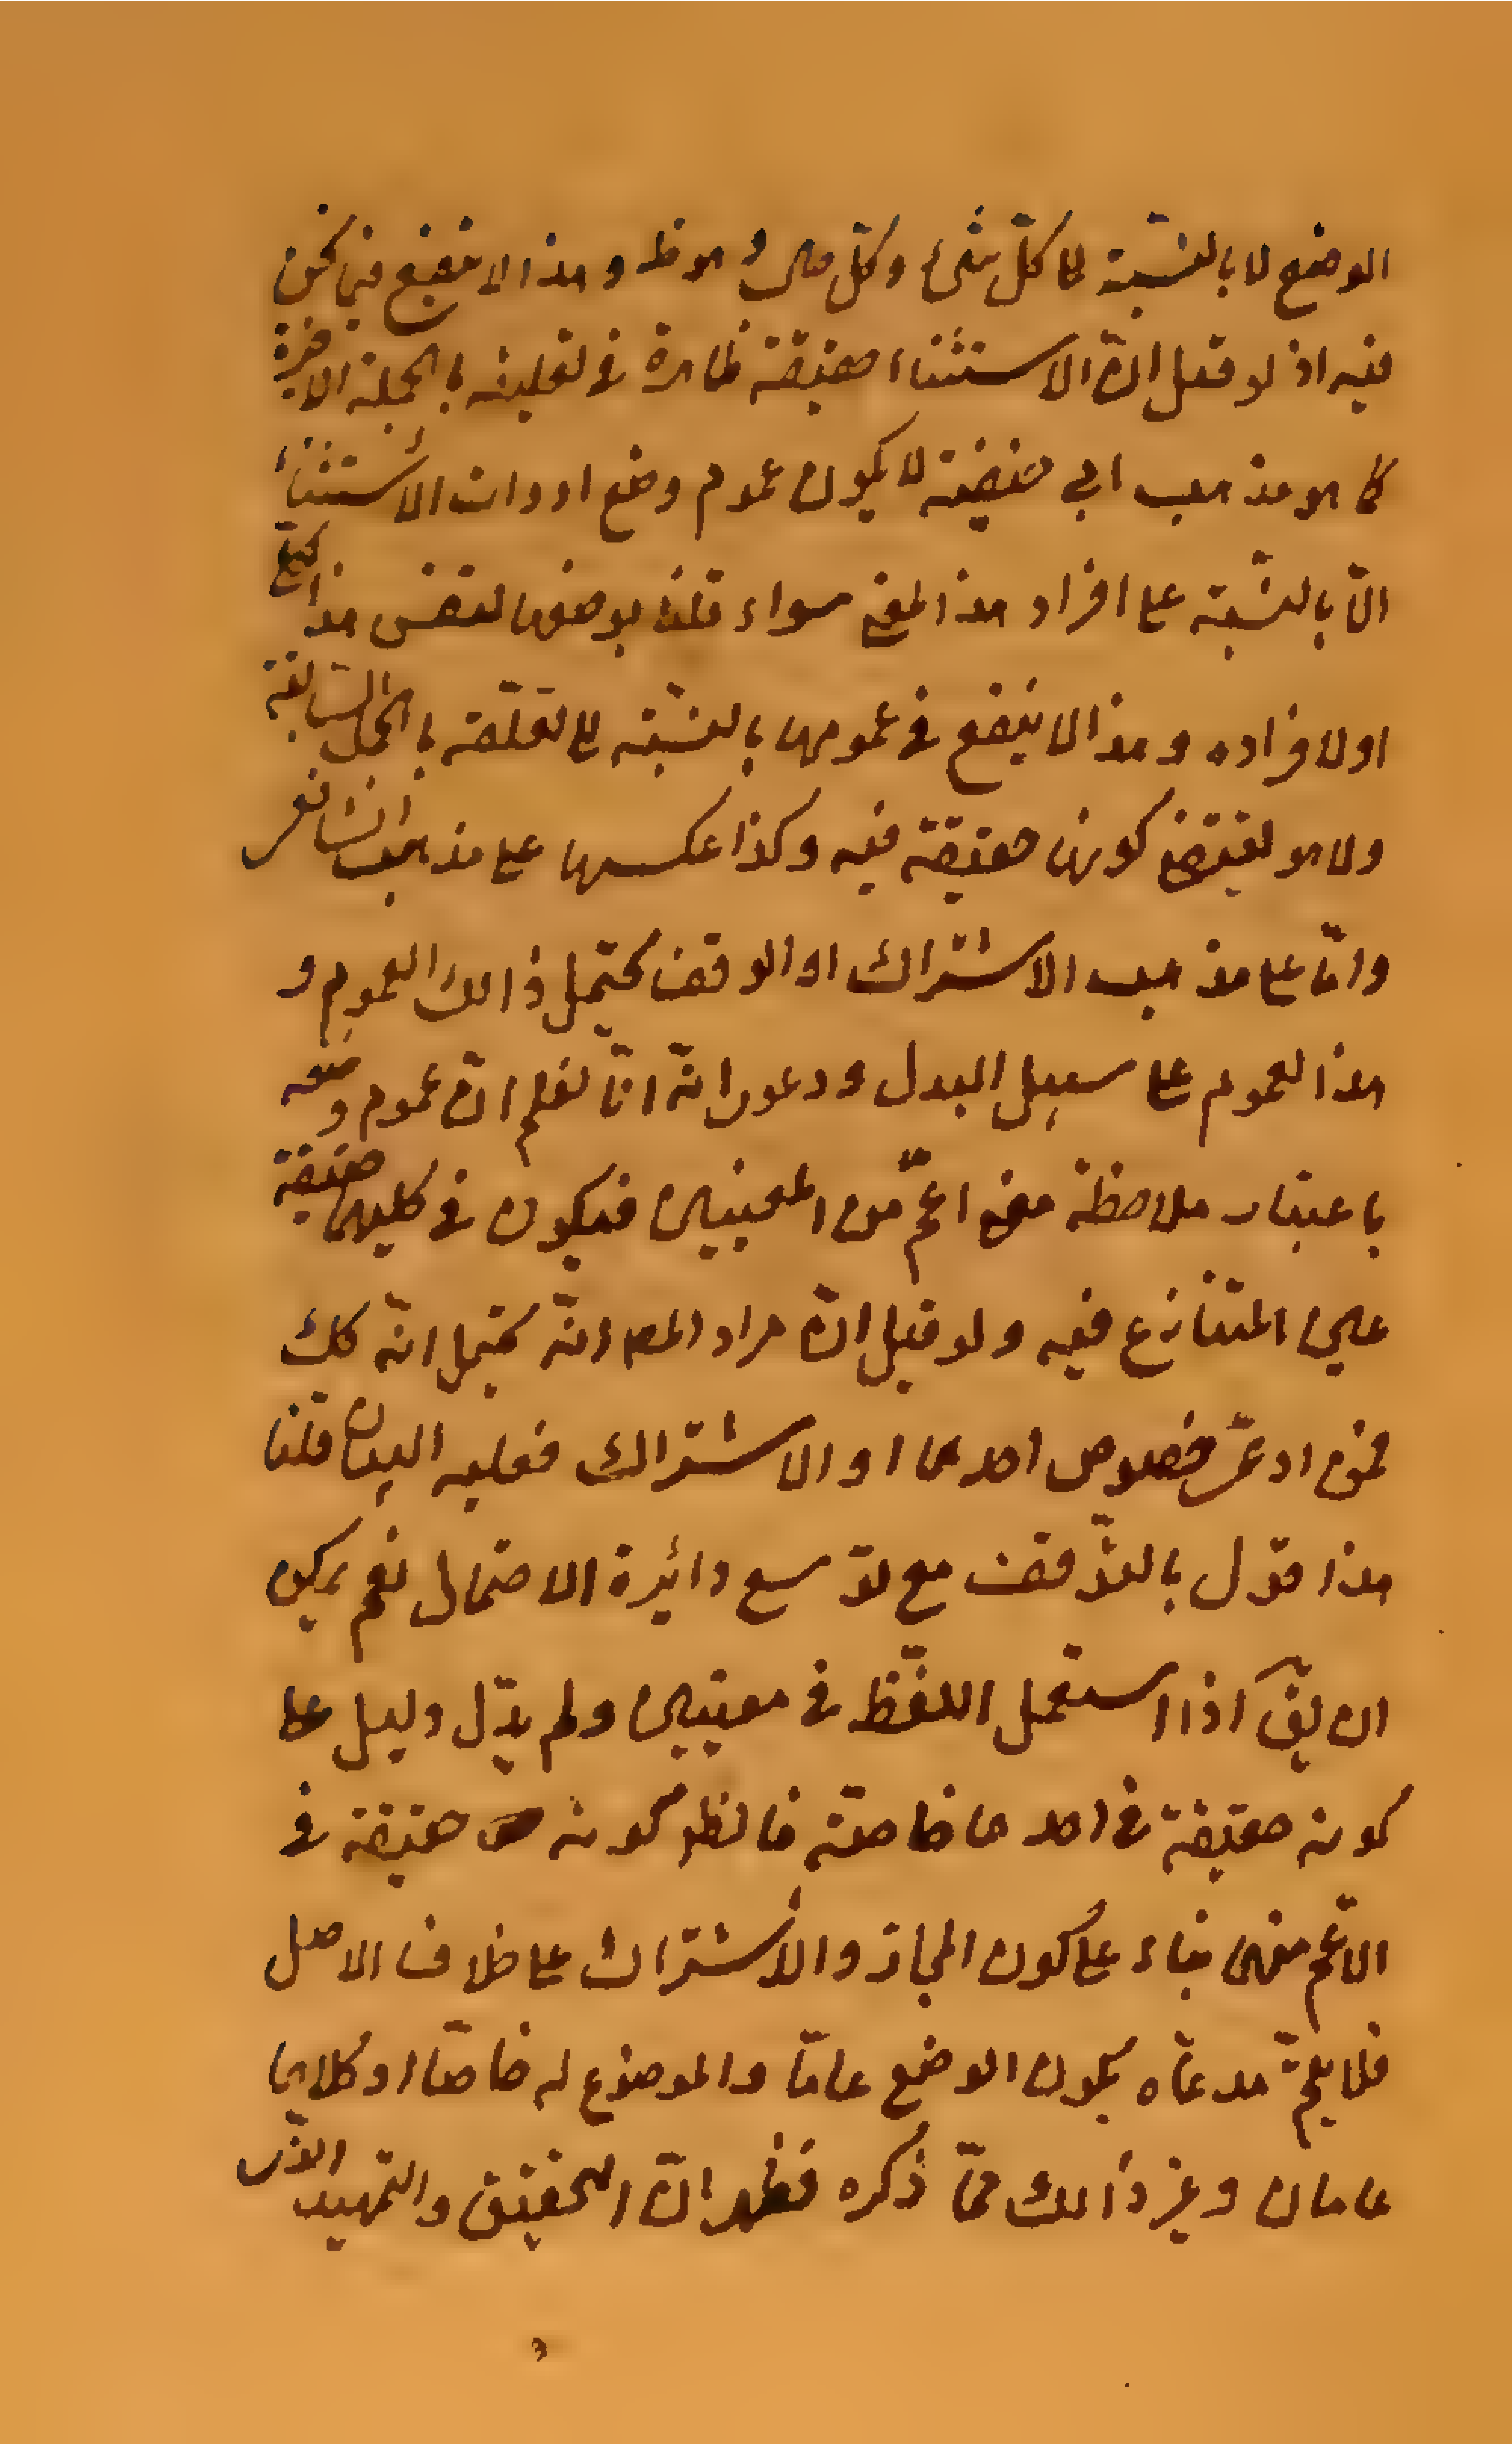 الوضع لا بالنسّبة الى كلّ شئ وكلّ ملحوظ وهذا لا ينفع فيما نحن
فيه اذ لو قيل انّ الاستثناء حقيقة ظاهرة في تعليقه بالجملة الاخيرة
كما هو مذهب ابي حنيفة لا يكون عموم وضع ادوات الاستثناء
الّا بالنسّبة على افراد هذا المعنى سواء قلنا بوضعها لنفس هذا المعنى
او لافراده وهذا لا ينفع في عمومها بالنسّبة الى تعلّقه بالجمل السّابقة
ولا هو يقتضى كونها حقيقة فيه وكذا عكسها على مذهب الشافعى
وامّا على مذهب الاشتراك او الوقف يحتمل ذالك العموم و
هذا العموم على سبيل البدل ودعوى انّه انّا نعلم انّ عموم وضعه
باعتبار ملاحظة معنى اعمّ من المعنيين فيكون في كليهما حقيقة
عين المتنازع فيه ولو قيل انّ مراد المص انّه يحتمل انّه كك
فمن ادعّى خصوص احدهما او الاشتراك فعليه البيان قلنا
هذا قول بالتّوقف مع توسع دائرة الاحتمال نعم يمكن
ان يقّ اذا استعمل اللفّظ في معنيين ولم يدّل دليل على
كونه حقيقة في احدهما خاصّة فالظ كونه حقيقة في
الاعّم منهما بناء على كون المجاز والاشتراك على خلاف الاصل
فلا يتمّ مدعّاه بكون الوضع عامّا والموضوع له خاصّا او كلاهما
عامان وغير ذالك ممّا ذكره فظهر انّ التحقيق والتمهيد الذّى